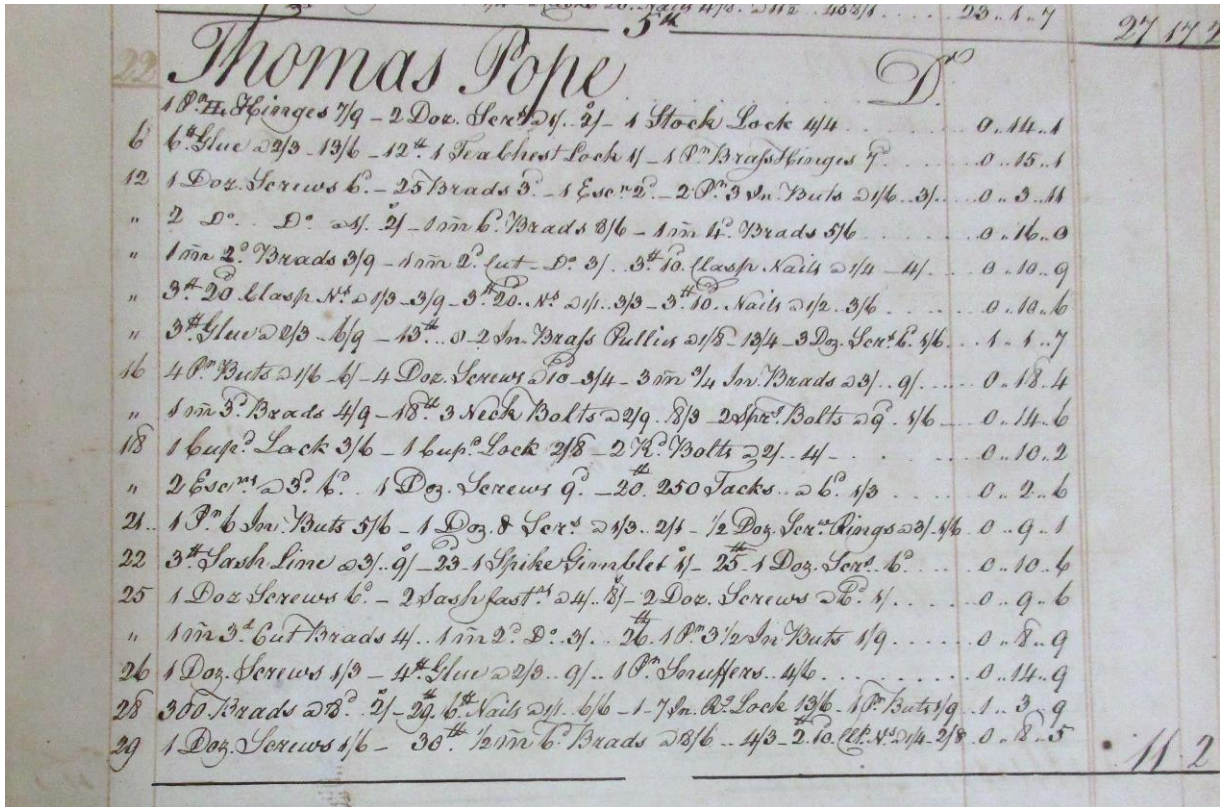 20 Nails 4/8 23..1..7
5th 27 17
22 Thomas Pope Dr
1 Pr H Hinges 7/9 – 2 Doz. Scrs @ 1/. 2/ – 1 Stock Lock 4/4 0..14..1
6 6lb Glue @ 2/3 – 13/6 – 12th 1 Tea Chest Lock 1/ – 1 Pr Brass Hinges 7d 0..15..1
12 1 Doz. Screws 6d – 25 Brads 3d – 1 Escn 2d – 2 Pr 3 In. Buts @ 1/6..3/. 0..3..11
" 2 Do. Do @ 1/. 2/ – 1 m̄ 6d Brads 8/6 – 1 m̄ 4d Brads 5/6 0..16..0
" 1 m̄ 2d Brads 3/9 – 1 m̄ 2d Cut – Do 3/. 3lb 10d Clasp Nails @ 1/4 – 4/. 0..10..9
" 3lb 20d Clasp Ns @ 1/3 – 3/9 – 3lb 20d Ns @ 1/1. 3/3 – 3lb 10d Nails @ 1/2. 3/6 0..10..6
" 3lb Glue @ 2/3 – 6/9 – 13th 8 – 2 In. Brass Pullies @ 1/8 – 13/4 – 3 Doz. Scrs 6d 1/6 1..1..7
16 4 Pr Buts @ 1/6 – 6/ – 4 Doz. Screws @ 10d – 3/4 – 3 m̄ 3/4 In. Brads @ 3/. 9/. 0..18..4
" 1 m̄ 3d Brads 4/9 – 18th 3 Neck Bolts @ 2/9. 8/3 – 2 Sprg Bolts @ 9d. 1/6 0..14..6
18 1 Cupd Lock 3/6 – 1 Cupd Lock 2/8 – 2 Rd Bolts @ 2/. 4/ 0..10..2
" 2 Escns @ 3d. 6d. 1 Doz. Screws 9d – 20th 250 Tacks.. @ 6d. 1/3 0..2..6
21.. 1 Pr 6 In. Buts 5/6 – 1 Doz. 8 Scrs @ 1/3.. 2/1 – 1/2 Doz. Scrw Rings @ 3/. 1/6 0..9..1
22 3lb Sash Line @ 3/. 9/ – 23d 1 Spike Gimblet 1/ – 25th 1 Doz. Scrs 6d 0..10..6
25 1 Doz Screws 6d – 2 Sash fastns @ 4/. 8/ – 2 Doz. Screws @ 6d. 1/. 0..9..6
" 1 m̄ 3d Cut Brads 4/.. 1 m̄ 2d Do. 3/. 26th 1 Pr 3 1/2 In Buts 1/9 0..8..9
26 1 Doz. Screws 1/3 – 4lb Glue @ 2/3.. 9/. – 1 Pr Snuffers. 4/6 0..14..9
28 300 Brads @ 8d. 2/ – 29th 6lb Nails @ 1/1. 6/6 – 1 – 7 In. Rd Lock 13/6 – 1 Pr Buts 1/9 1..3..9
29 1 Doz. Screws 1/6 – 30th 1/2 m̄ 6d Brads @ 8/6 – 4/3 – 2lb 10d Clp. Ns @ 1/4 – 2/8 0..8..5 11 2